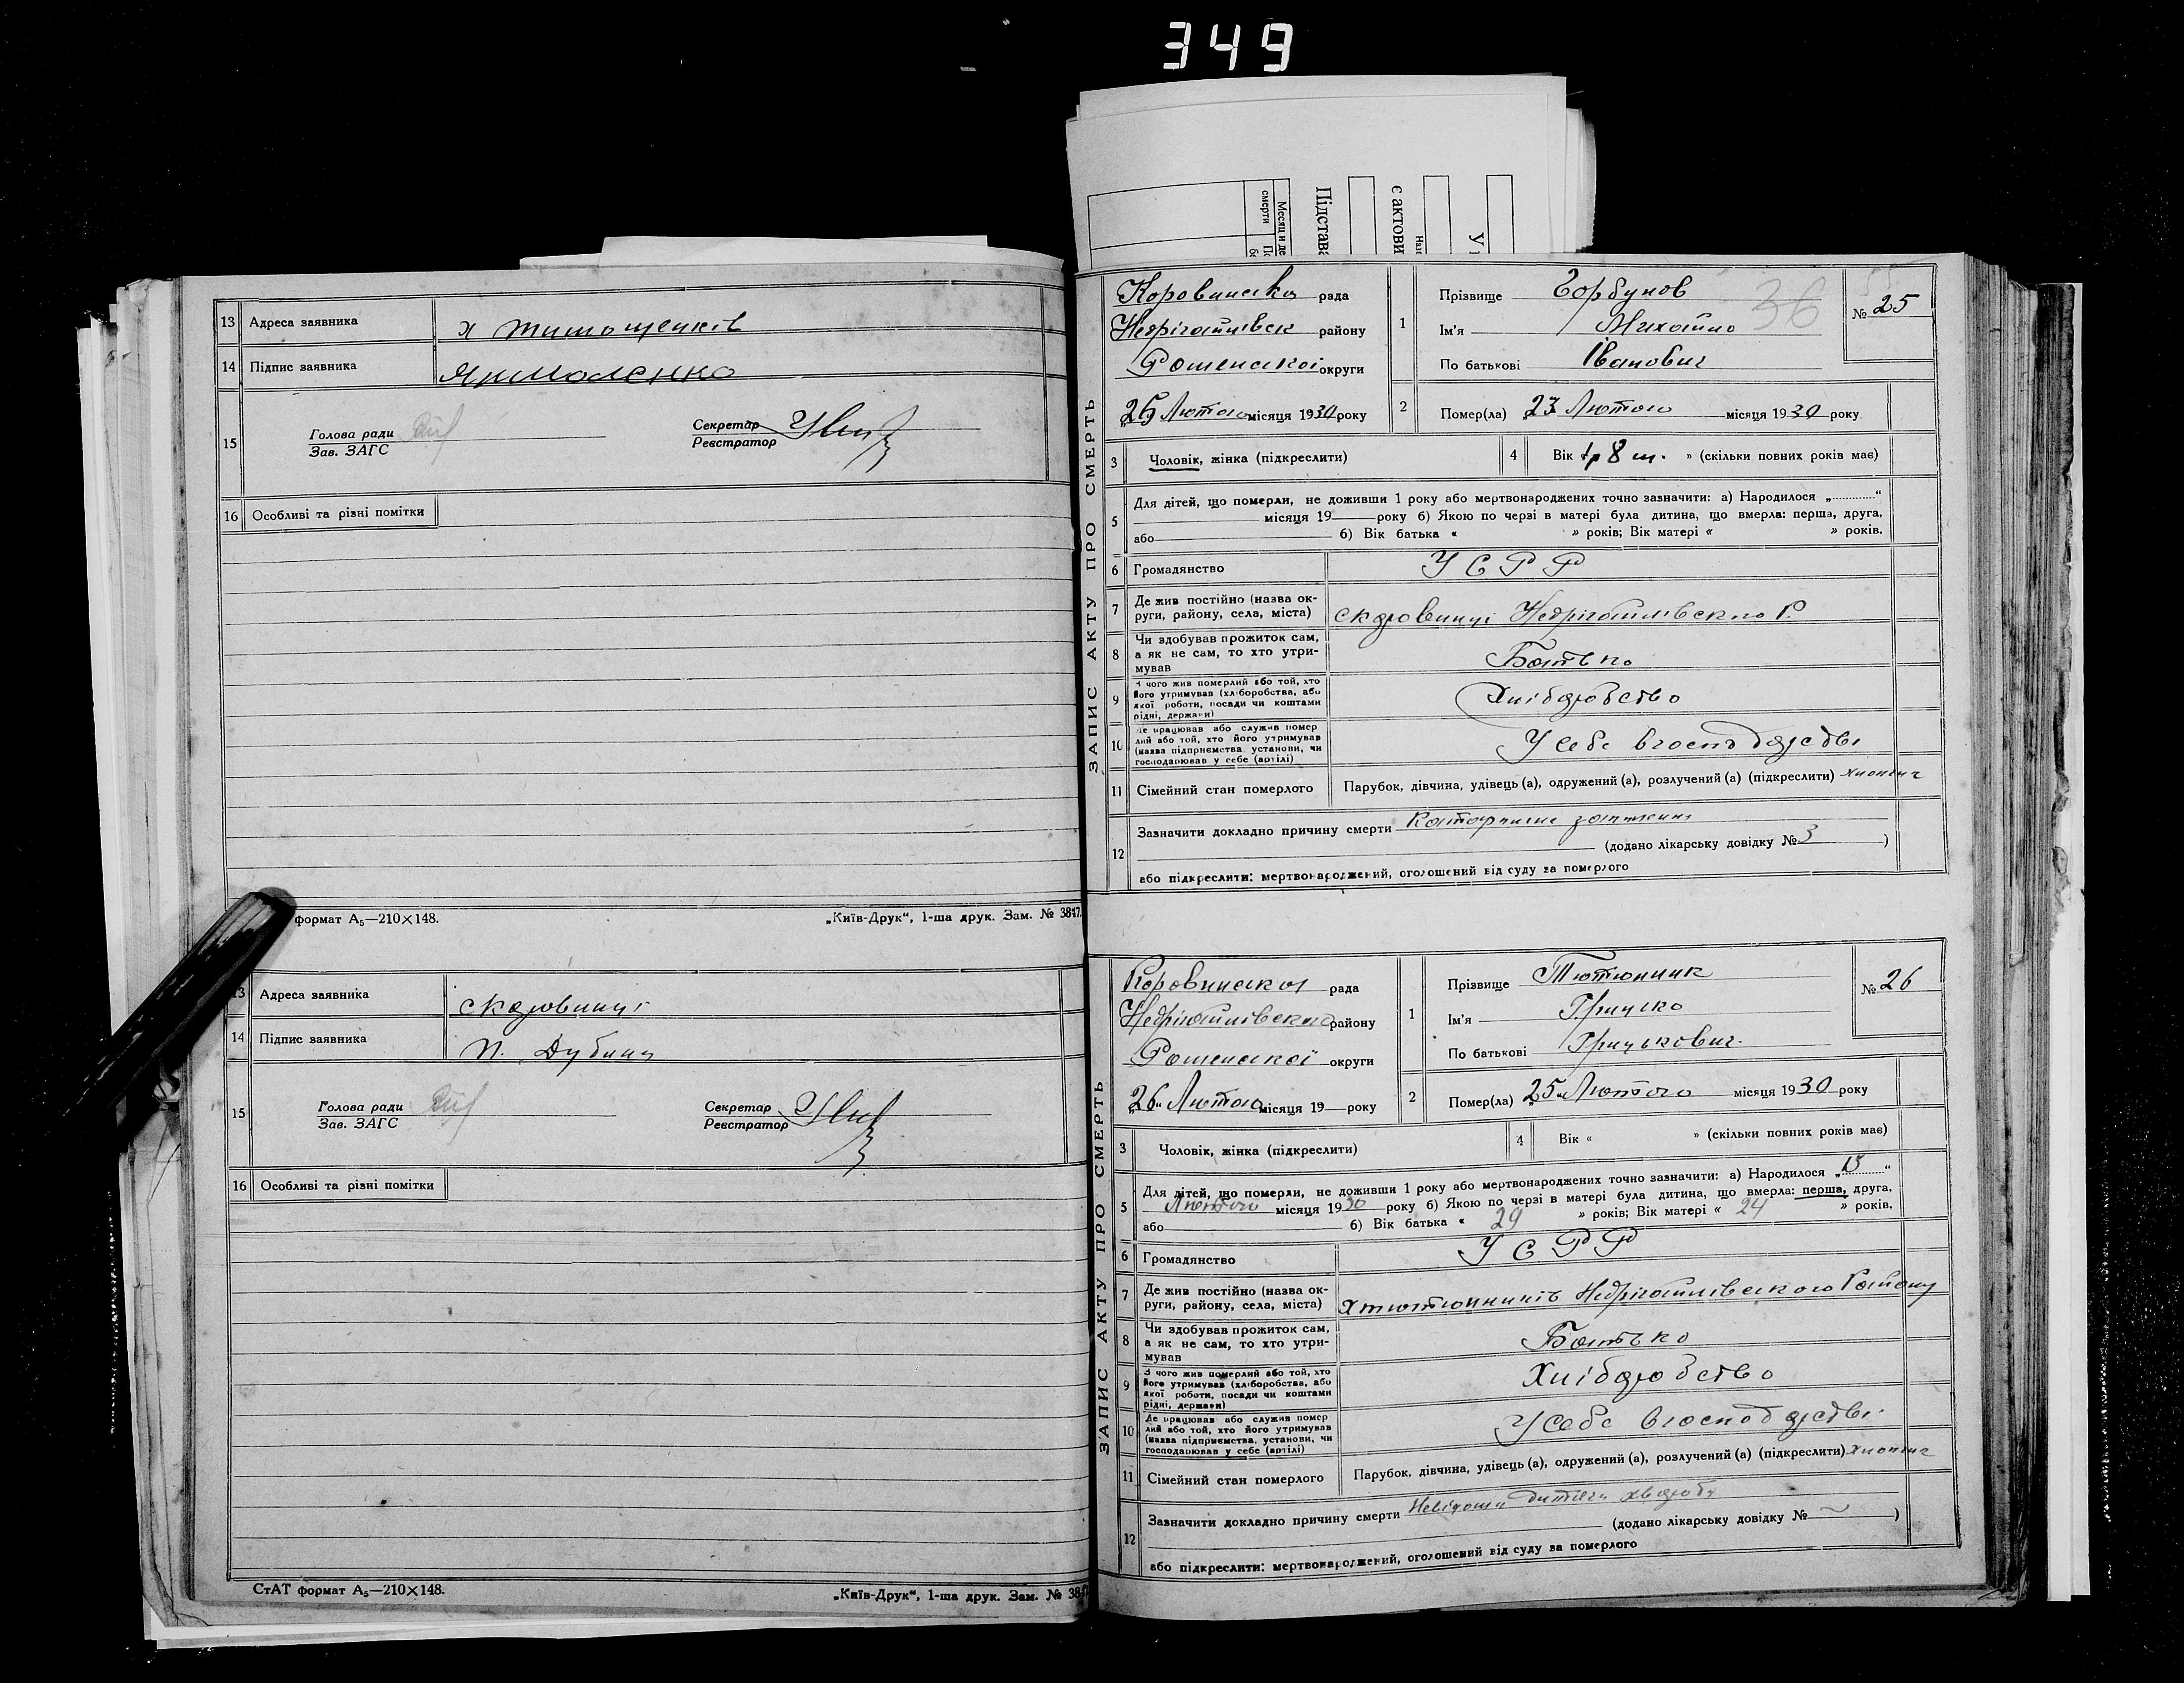 349
Месяц и де
смерти
Підстава
є актови
Наз
У
13 Адреса заявника х Тимощенків
14 Підпис заявника Ярмоленко
15 Голова ради
Зав. ЗАГС
Секретар
Реєстратор
16 Особливі та різні помітки
формат А5—210×148. „Київ-Друк“, 1-ша друк. Зам. № 3847.
13 Адреса заявника с Коровинці
14 Підпис заявника П. Дубина
15 Голова ради
Зав. ЗАГС
Секретар
Реєстратор
16 Особливі та різні помітки
СтАТ формат А5—210×148. „Київ-Друк“, 1-ша друк. Зам. № 38
ЗАПИС АКТУ ПРО СМЕРТЬ
Коровинська рада
Недрігайлівск району
Роменської округи
„25 Лютого місяця 1930 року
1 Прізвище Горбунов
Ім'я Михайло
По батькові Іванович
36
№ 25
2 Помер(ла) 23 Лютого місяця 1930 року
3 Чоловік, жінка (підкреслити)
4 Вік « 8 м. » (скільки повних років має)
5 Для дітей, що померли, не доживши 1 року або мертвонароджених точно зазначити: а) Народилося „ “
місяця 19 року б) Якою по черзі в матері була дитина, що вмерла: перша, друга,
або б) Вік батька « » років; Вік матері « » років.
6 Громадянство УСРР
7 Де жив постійно (назва ок-
руги, району, села, міста) с Коровинці Недрігайлівского Р.
8 Чи здобував прожиток сам,
а як не сам, то хто утри-
мував Батько
9 З чого жив померлий або той, хто
його утримував (хліборобства, або
якої роботи, посади чи коштами
рідні, держави) Хліборобство
10 Де працював або служив помер
лий або той, хто його утримував
(назва підприємства, установи, чи
господарював у себе (артілі) У себе в господарстві
11 Сімейний стан померлого Парубок, дівчина, удівець (а), одружений (а), розлучений (а) (підкреслити) хлопчик
12 Зазначити докладно причину смерти Катаральне запалення
(додано лікарську довідку № 3 )
або підкреслити: мертвонароджений, оголошений від суду за померлого
ЗАПИС АКТУ ПРО СМЕРТЬ
Коровинська рада
Недрігайлівского району
Роменської округи
„26“ Лютого місяця 19 року
1 Прізвище Тютюнник
Ім'я Грицько
По батькові Грицькович
№ 26
2 Помер(ла) „25“ Лютого місяця 1930 року
3 Чоловік, жінка (підкреслити)
4 Вік « » (скільки повних років має)
5 Для дітей, що померли, не доживши 1 року або мертвонароджених точно зазначити: а) Народилося „15“
Лютого місяця 1930 року б) Якою по черзі в матері була дитина, що вмерла: перша, друга,
або б) Вік батька « 29 » років; Вік матері « 24 » років.
6 Громадянство УСРР
7 Де жив постійно (назва ок-
руги, району, села, міста) х Тютюнників Недрігайлівского Району
8 Чи здобував прожиток сам,
а як не сам, то хто утри-
мував Батько
9 З чого жив померлий або той, хто
його утримував (хліборобства, або
якої роботи, посади чи коштами
рідні, держави) Хліборобство
10 Де працював або служив помер
лий або той, хто його утримував
(назва підприємства, установи, чи
господарював у себе (артілі) У себе в господарстві
11 Сімейний стан померлого Парубок, дівчина, удівець (а), одружений (а), розлучений (а) (підкреслити) хлопчик
12 Зазначити докладно причину смерти Невідома дитяча хвороба
(додано лікарську довідку № ~ )
або підкреслити: мертвонароджений, оголошений від суду за померлого